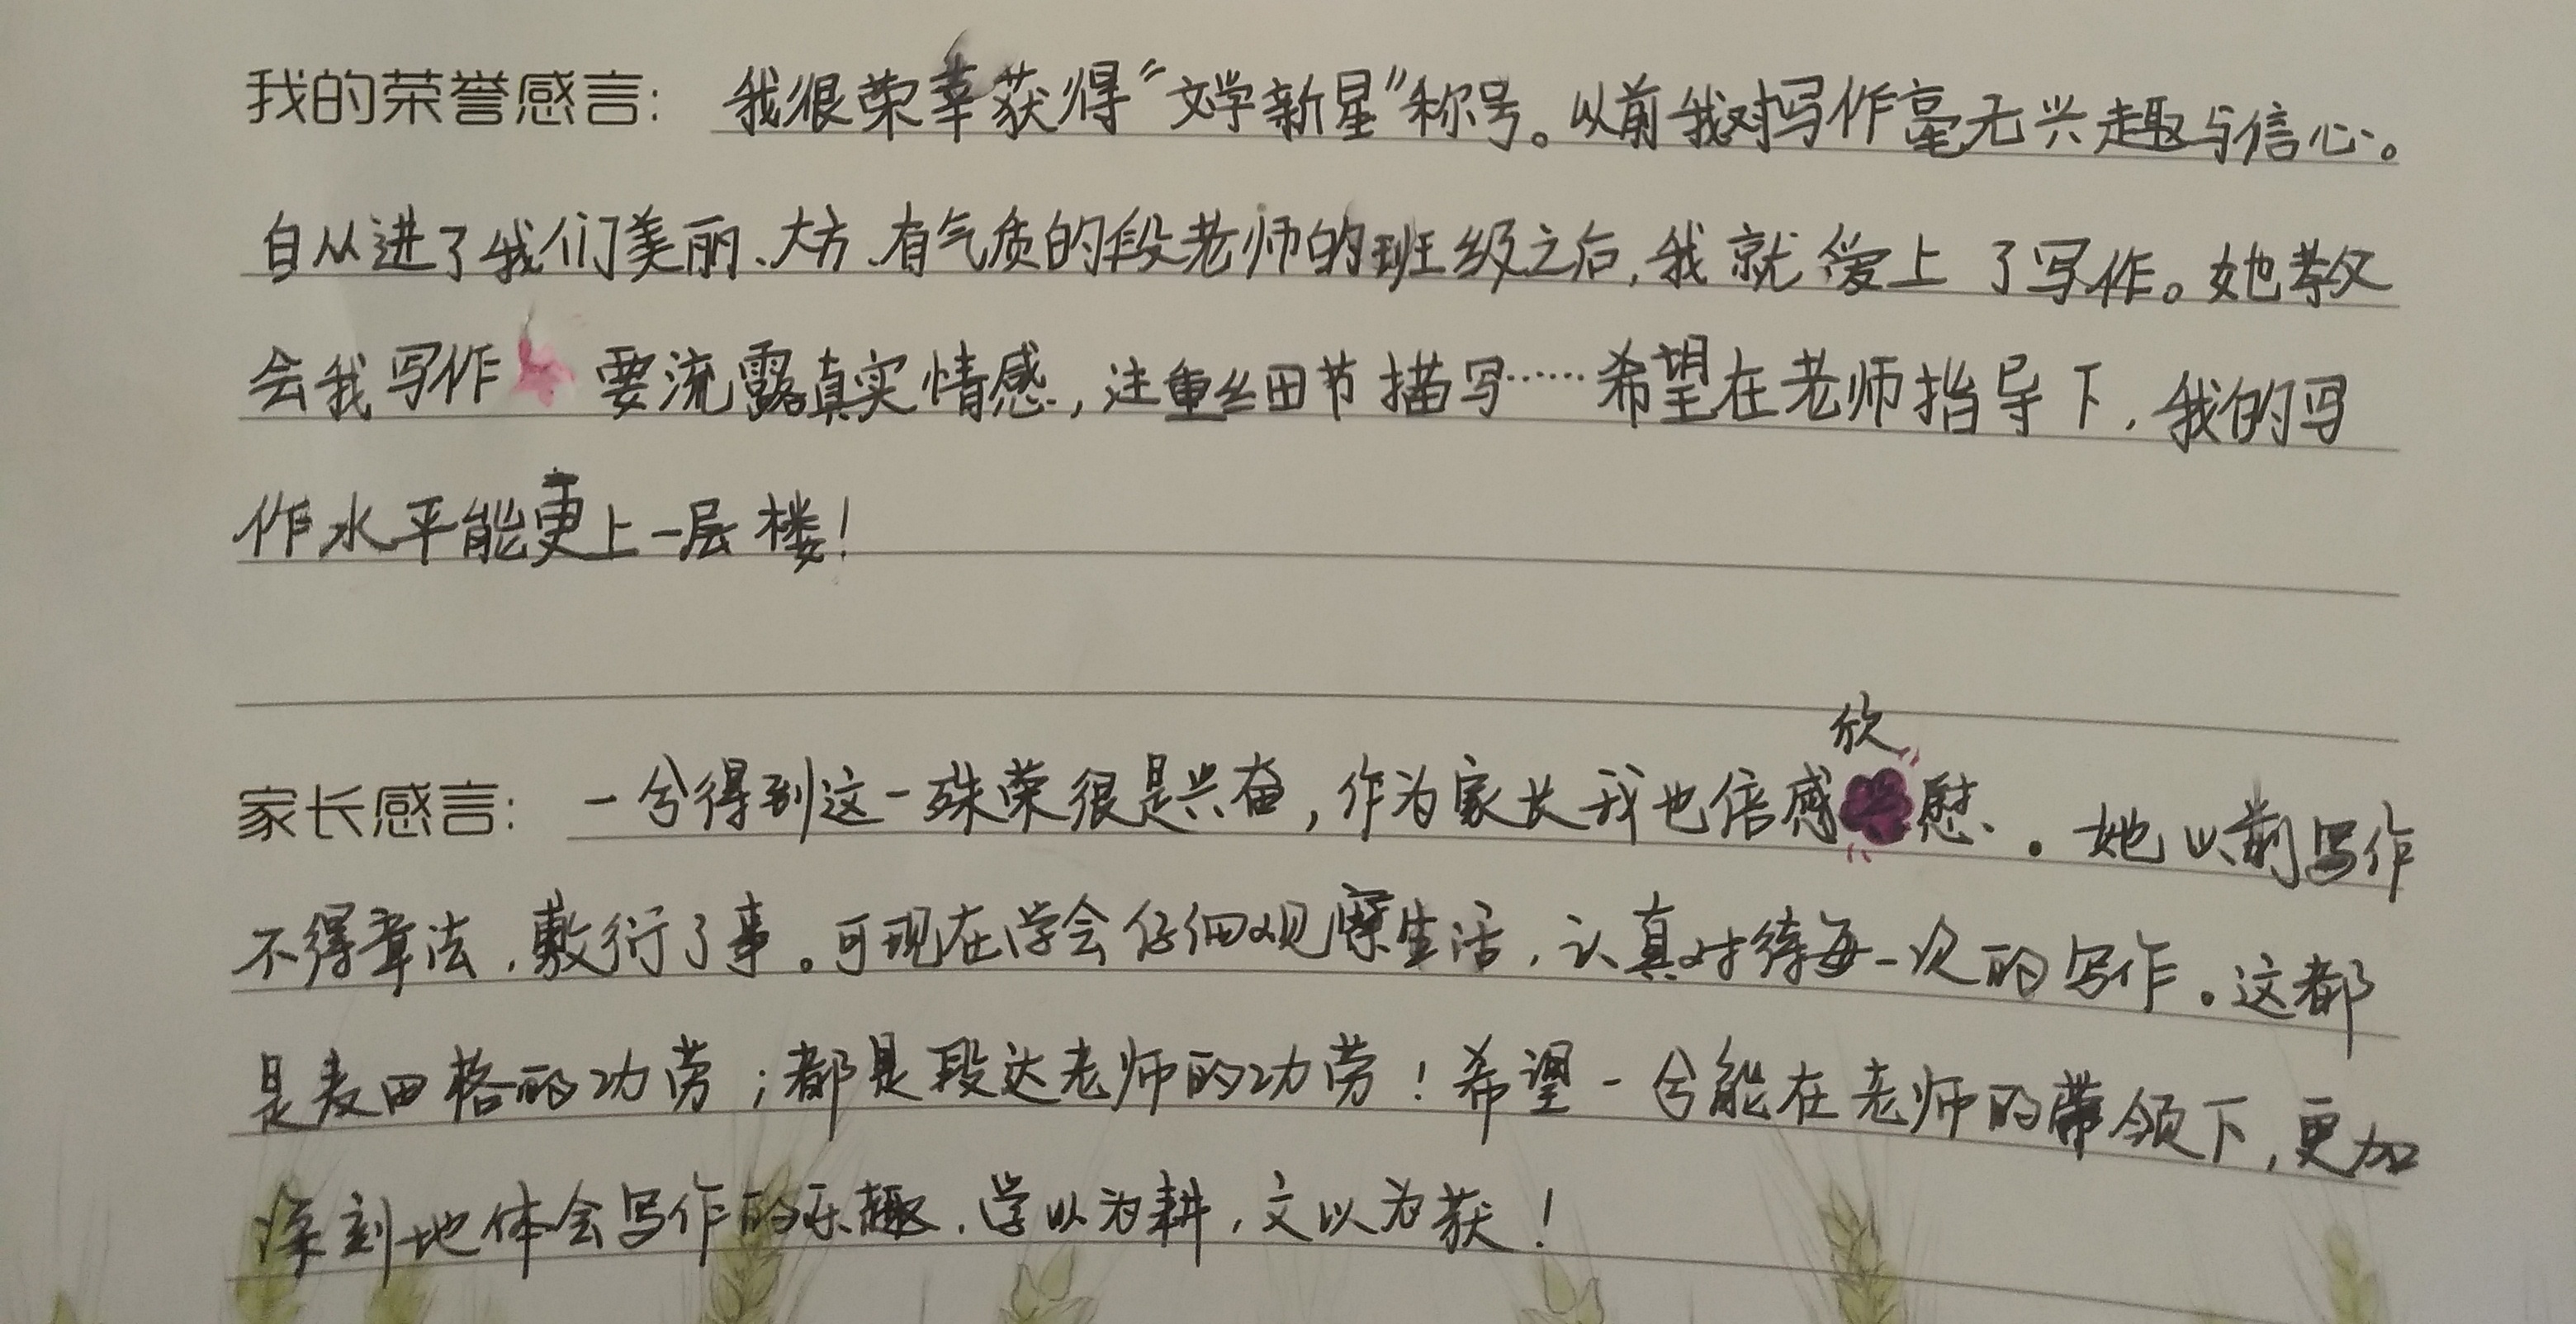 我的荣誉感言：我很荣幸获得“文学新星”称号。以前我对写作毫无兴趣与信心。
自从进了我们美丽、大方、有气质的段老师的班级之后，我就爱上了写作。她教
会我写作要流露真实情感，注重细节描写……希望在老师指导下，我的写
作水平能更上一层楼！
家长感言：一兮得到这一殊荣很是兴奋，作为家长我也倍感欣慰。她以前写作
不得章法，敷衍了事。可现在学会仔细观察生活，认真对待每一次的写作。这都
是麦田格的功劳；都是段达老师的功劳！希望一兮能在老师的带领下，更加
深刻地体会写作的乐趣，学以为耕，文以为获！